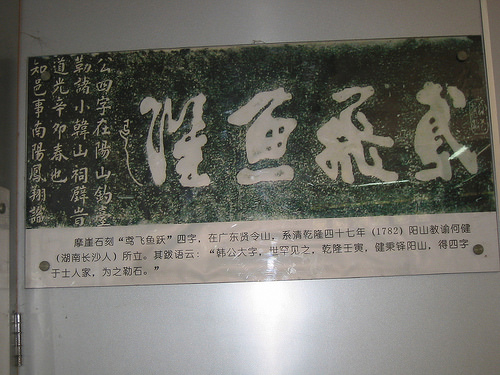 鸢飞鱼跃
公四字在陽山釣
勒諸小韓山祠壁
道光辛卯春也
知邑事南陽鳳翔
摩崖石刻“鸢飞鱼跃”四字，在广东贤令山，系清乾隆四十七年（1782）阳山教谕何健
（湖南长沙人）所立。其跋语云：“韩公大字，世罕见之，乾隆壬寅，健秉铎阳山，得四字
于士人家，为之勒石。”